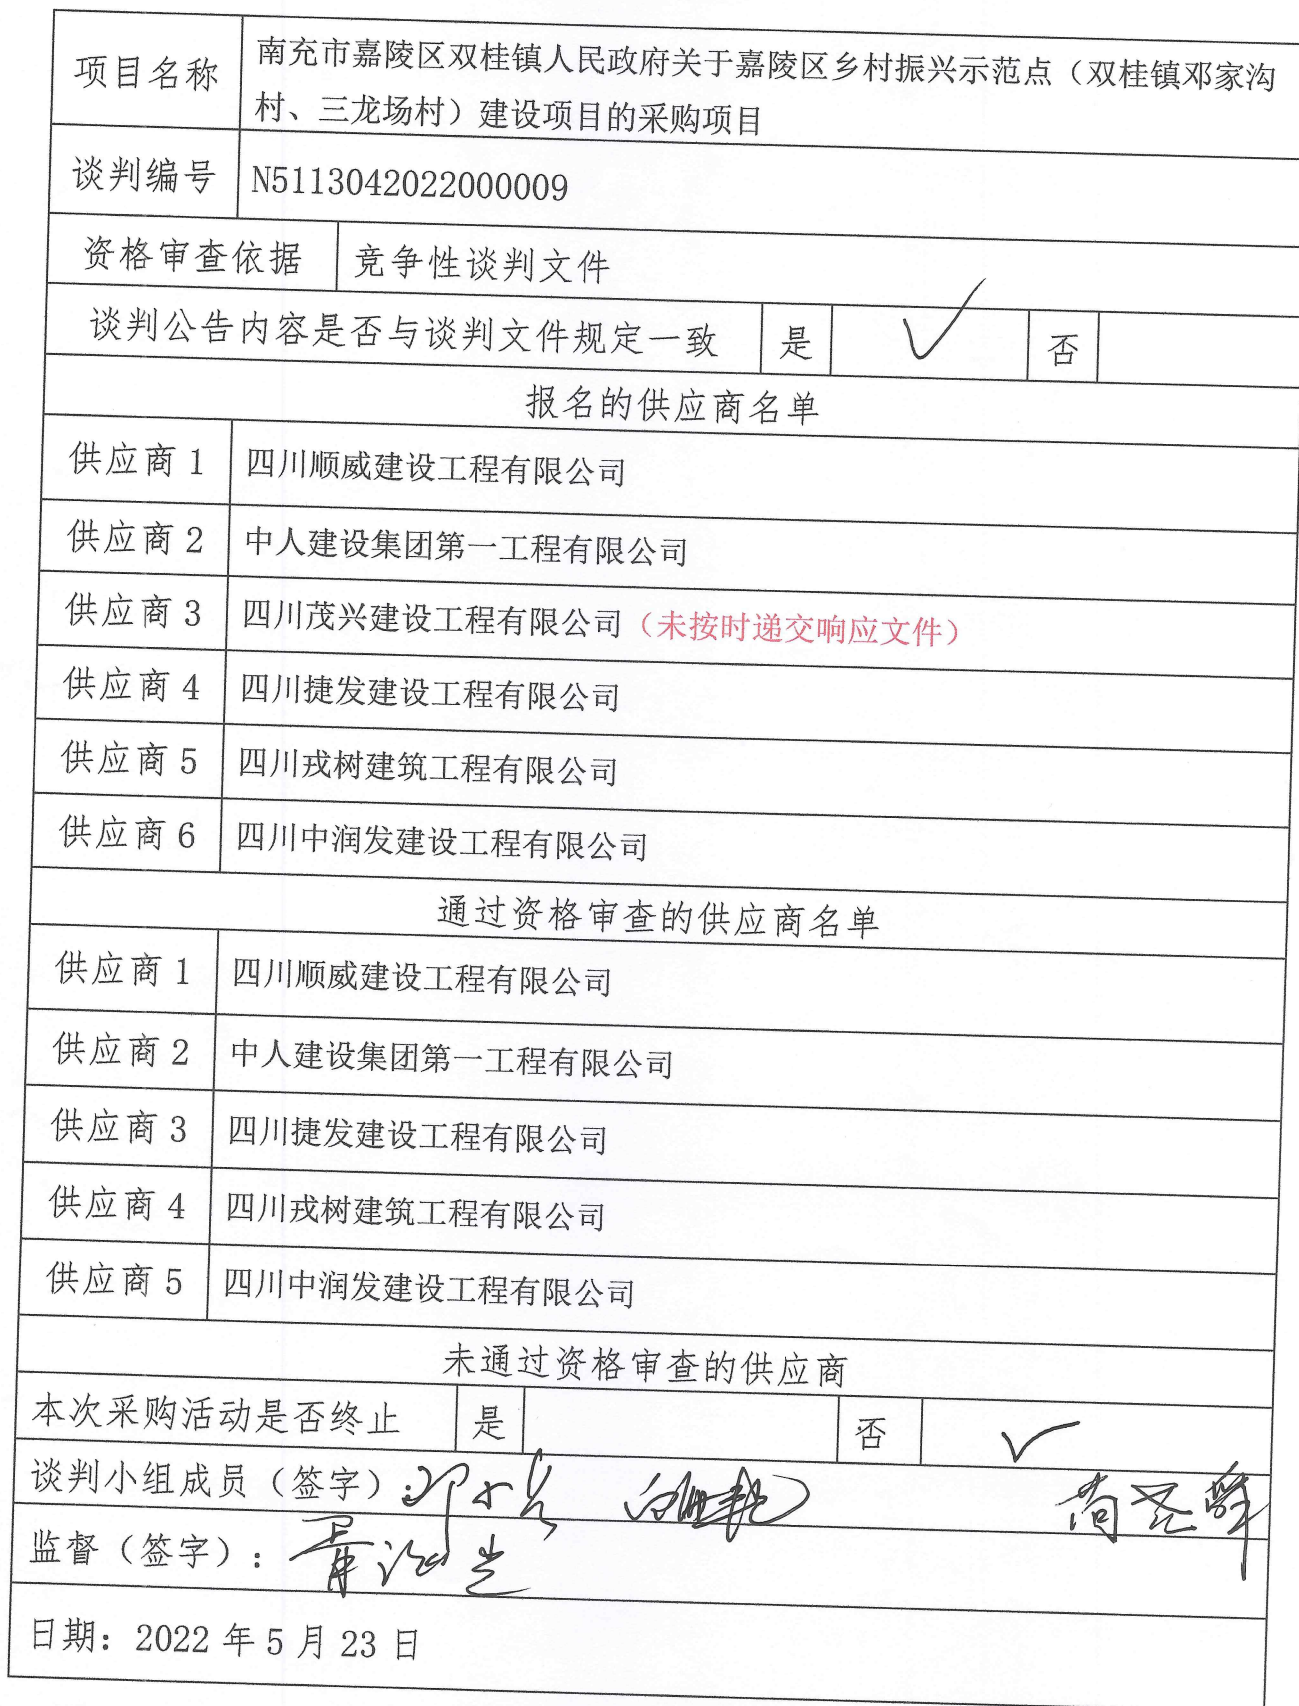 项目名称
南充市嘉陵区双桂镇人民政府关于嘉陵区乡村振兴示范点（双桂镇邓家沟
村、三龙场村）建设项目的采购项目
谈判编号 N5113042022000009
资格审查依据 竞争性谈判文件
谈判公告内容是否与谈判文件规定一致 是 ✓ 否
报名的供应商名单
供应商 1 四川顺威建设工程有限公司
供应商 2 中人建设集团第一工程有限公司
供应商 3 四川茂兴建设工程有限公司（未按时递交响应文件）
供应商 4 四川捷发建设工程有限公司
供应商 5 四川戎树建筑工程有限公司
供应商 6 四川中润发建设工程有限公司
通过资格审查的供应商名单
供应商 1 四川顺威建设工程有限公司
供应商 2 中人建设集团第一工程有限公司
供应商 3 四川捷发建设工程有限公司
供应商 4 四川戎树建筑工程有限公司
供应商 5 四川中润发建设工程有限公司
未通过资格审查的供应商
本次采购活动是否终止 是 否 ✓
谈判小组成员（签字）：
监督（签字）：
日期：2022 年 5 月 23 日